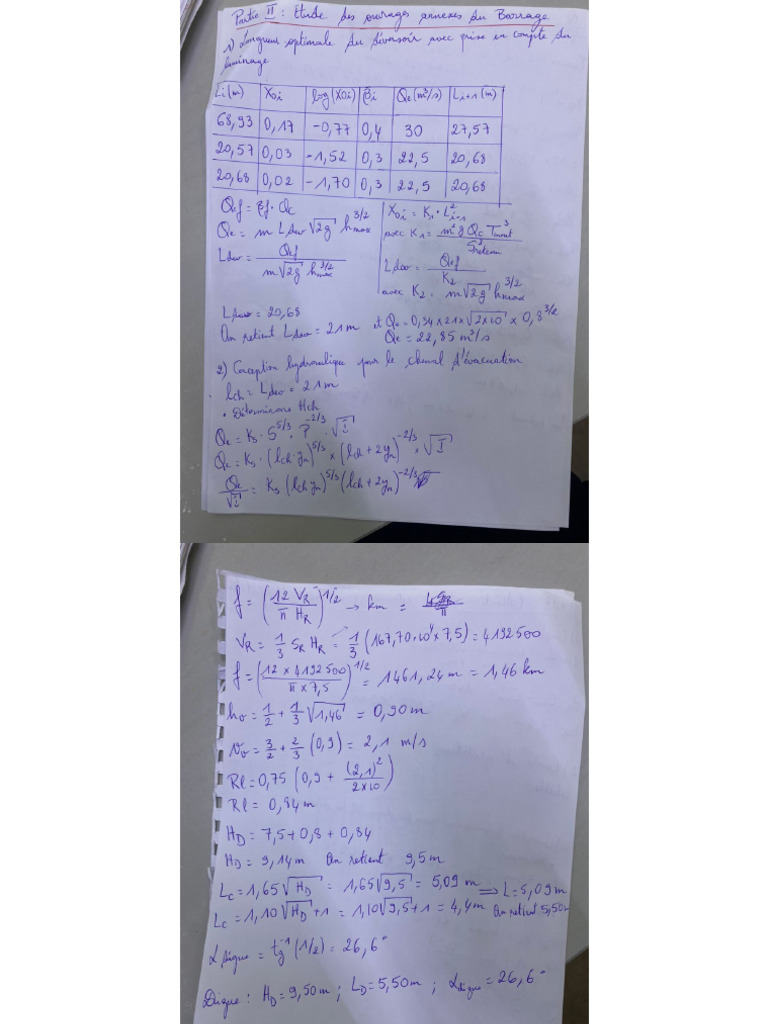 Partie II : Etude des ouvrages annexes du Barrage
1) Longueur optimale du déversoir avec prise en compte du
laminage
Li(m) Xoi log(Xoi) βi Qe(m³/s) Li+1(m)
68,93 0,17 -0,77 0,4 30 27,57
20,57 0,03 -1,52 0,3 22,5 20,68
20,68 0,02 -1,70 0,3 22,5 20,68
Qef = βf · Qc
Qe = m Ldev √2g hmax^3/2
Ldev = Qef / (m √2g hmax^3/2)
Xoi = K1 · L²i-1
avec K1 = m² g Qc Tmont³ / S³réteau
Ldev = Qef / K2
avec K2 = m √2g hmax^3/2
Ldev = 20,68
On retient Ldev = 21m et Qe = 0,34 x 21 x √2x10 x 0,8^3/2
Qe = 22,85 m³/s
2) Conception hydraulique pour le chenal d'évacuation
. lch = Ldev = 21m
• Déterminons Hch
Qe = Ks · S^5/3 · P^-2/3 · √I
Qe = Ks · (lch · yn)^5/3 x (lch + 2yn)^-2/3 x √I
Qe/√I = Ks (lch yn)^5/3 (lch + 2yn)^-2/3
f = (12 VR / π HR)^1/2 → km =
VR = 1/3 SR HR = 1/3 (167,70·10⁴ x 7,5) = 4192500
f = (12 x 4192500 / π x 7,5)^1/2 = 1461,24 m = 1,46 km
ho = 1/2 + 1/3 √1,46 = 0,90m
vo = 3/2 + 2/3 (0,9) = 2,1 m/s
Rl = 0,75 (0,9 + (2,1)² / 2x10)
Rl = 0,84m
HD = 7,5 + 0,8 + 0,84
HD = 9,14m On retient 9,5m
Lc = 1,65 √HD = 1,65 √9,5 = 5,09 m ⟹ L = 5,09m
Lc = 1,10 √HD + 1 = 1,10 √9,5 + 1 = 4,4m On retient 5,50m
α digue = tg⁻¹ (1/2) = 26,6°
Digue : HD = 9,50m ; LD = 5,50m ; α digue = 26,6°